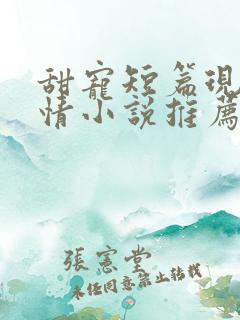 甜寵短篇現
情小說推薦
張憲堂
未經同意禁止轉載